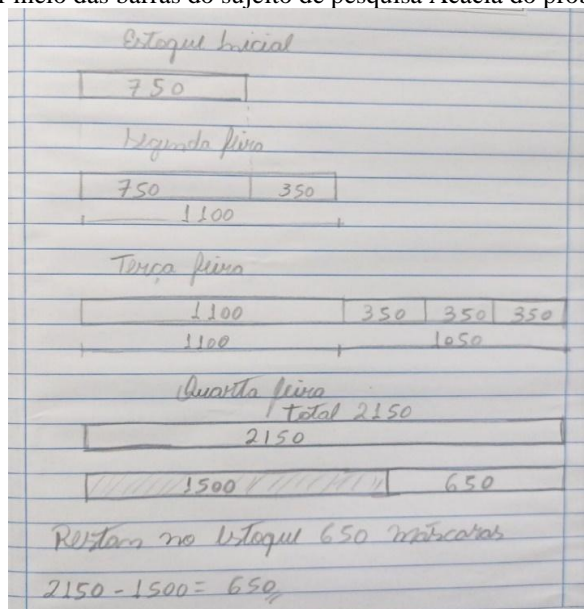 meio das barras do sujeito de pesquisa Acácia do
Estoque Inicial
750
Segunda feira
750 350
1100
Terça feira
1100 350 350 350
1100 1050
Quarta feira
total 2150
2150
1500 650
Restam no estoque 650 máscaras
2150 - 1500 = 650